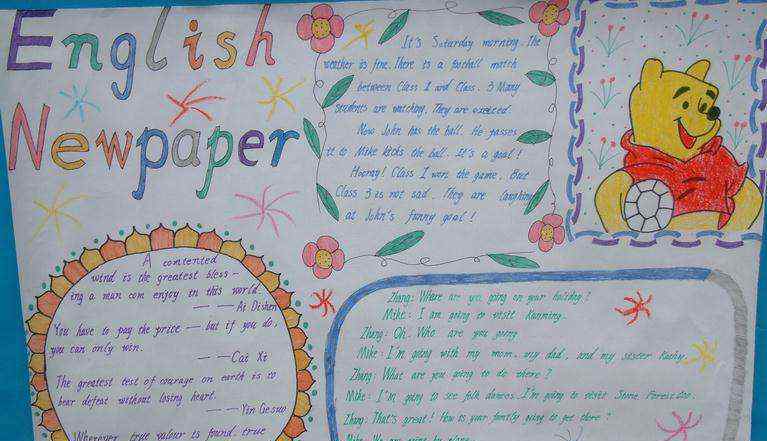 English
Newpaper
It's Saturday morning. The
weather is fine. There is a football match
between Class 1 and Class 3 Many
students are watching. They are excited.
Now John has the ball. He passes
it to Mike kicks the ball. It's a goal!
Hooray! Class 1 wons the game. But
Class 3 is not sad. They are laughing
at John's funny goal!
A contented
wind is the greatest bless-
ing a man can enjoy in this world.
——Ai Dishen
You have to pay the price — but if you do,
you can only win.
——Cai Xi
The greatest test of courage on earth is to
bear defeat without losing heart.
——Yin Gesuo
Wherever true valour is found, true
Zhang: Where are you going on your holiday?
Mike: I am going to visit Kunming.
Zhang: Oh. Who are you going
Mike: I'm going with my mom, my dad, and my sister Kathy.
Zhang: What are you going to do there?
Mike: I'm going to see folk dances. I'm going to visit Stone Forest too.
Zhang: That's great! How is your family going to get there?
Mike: We are going by plane.